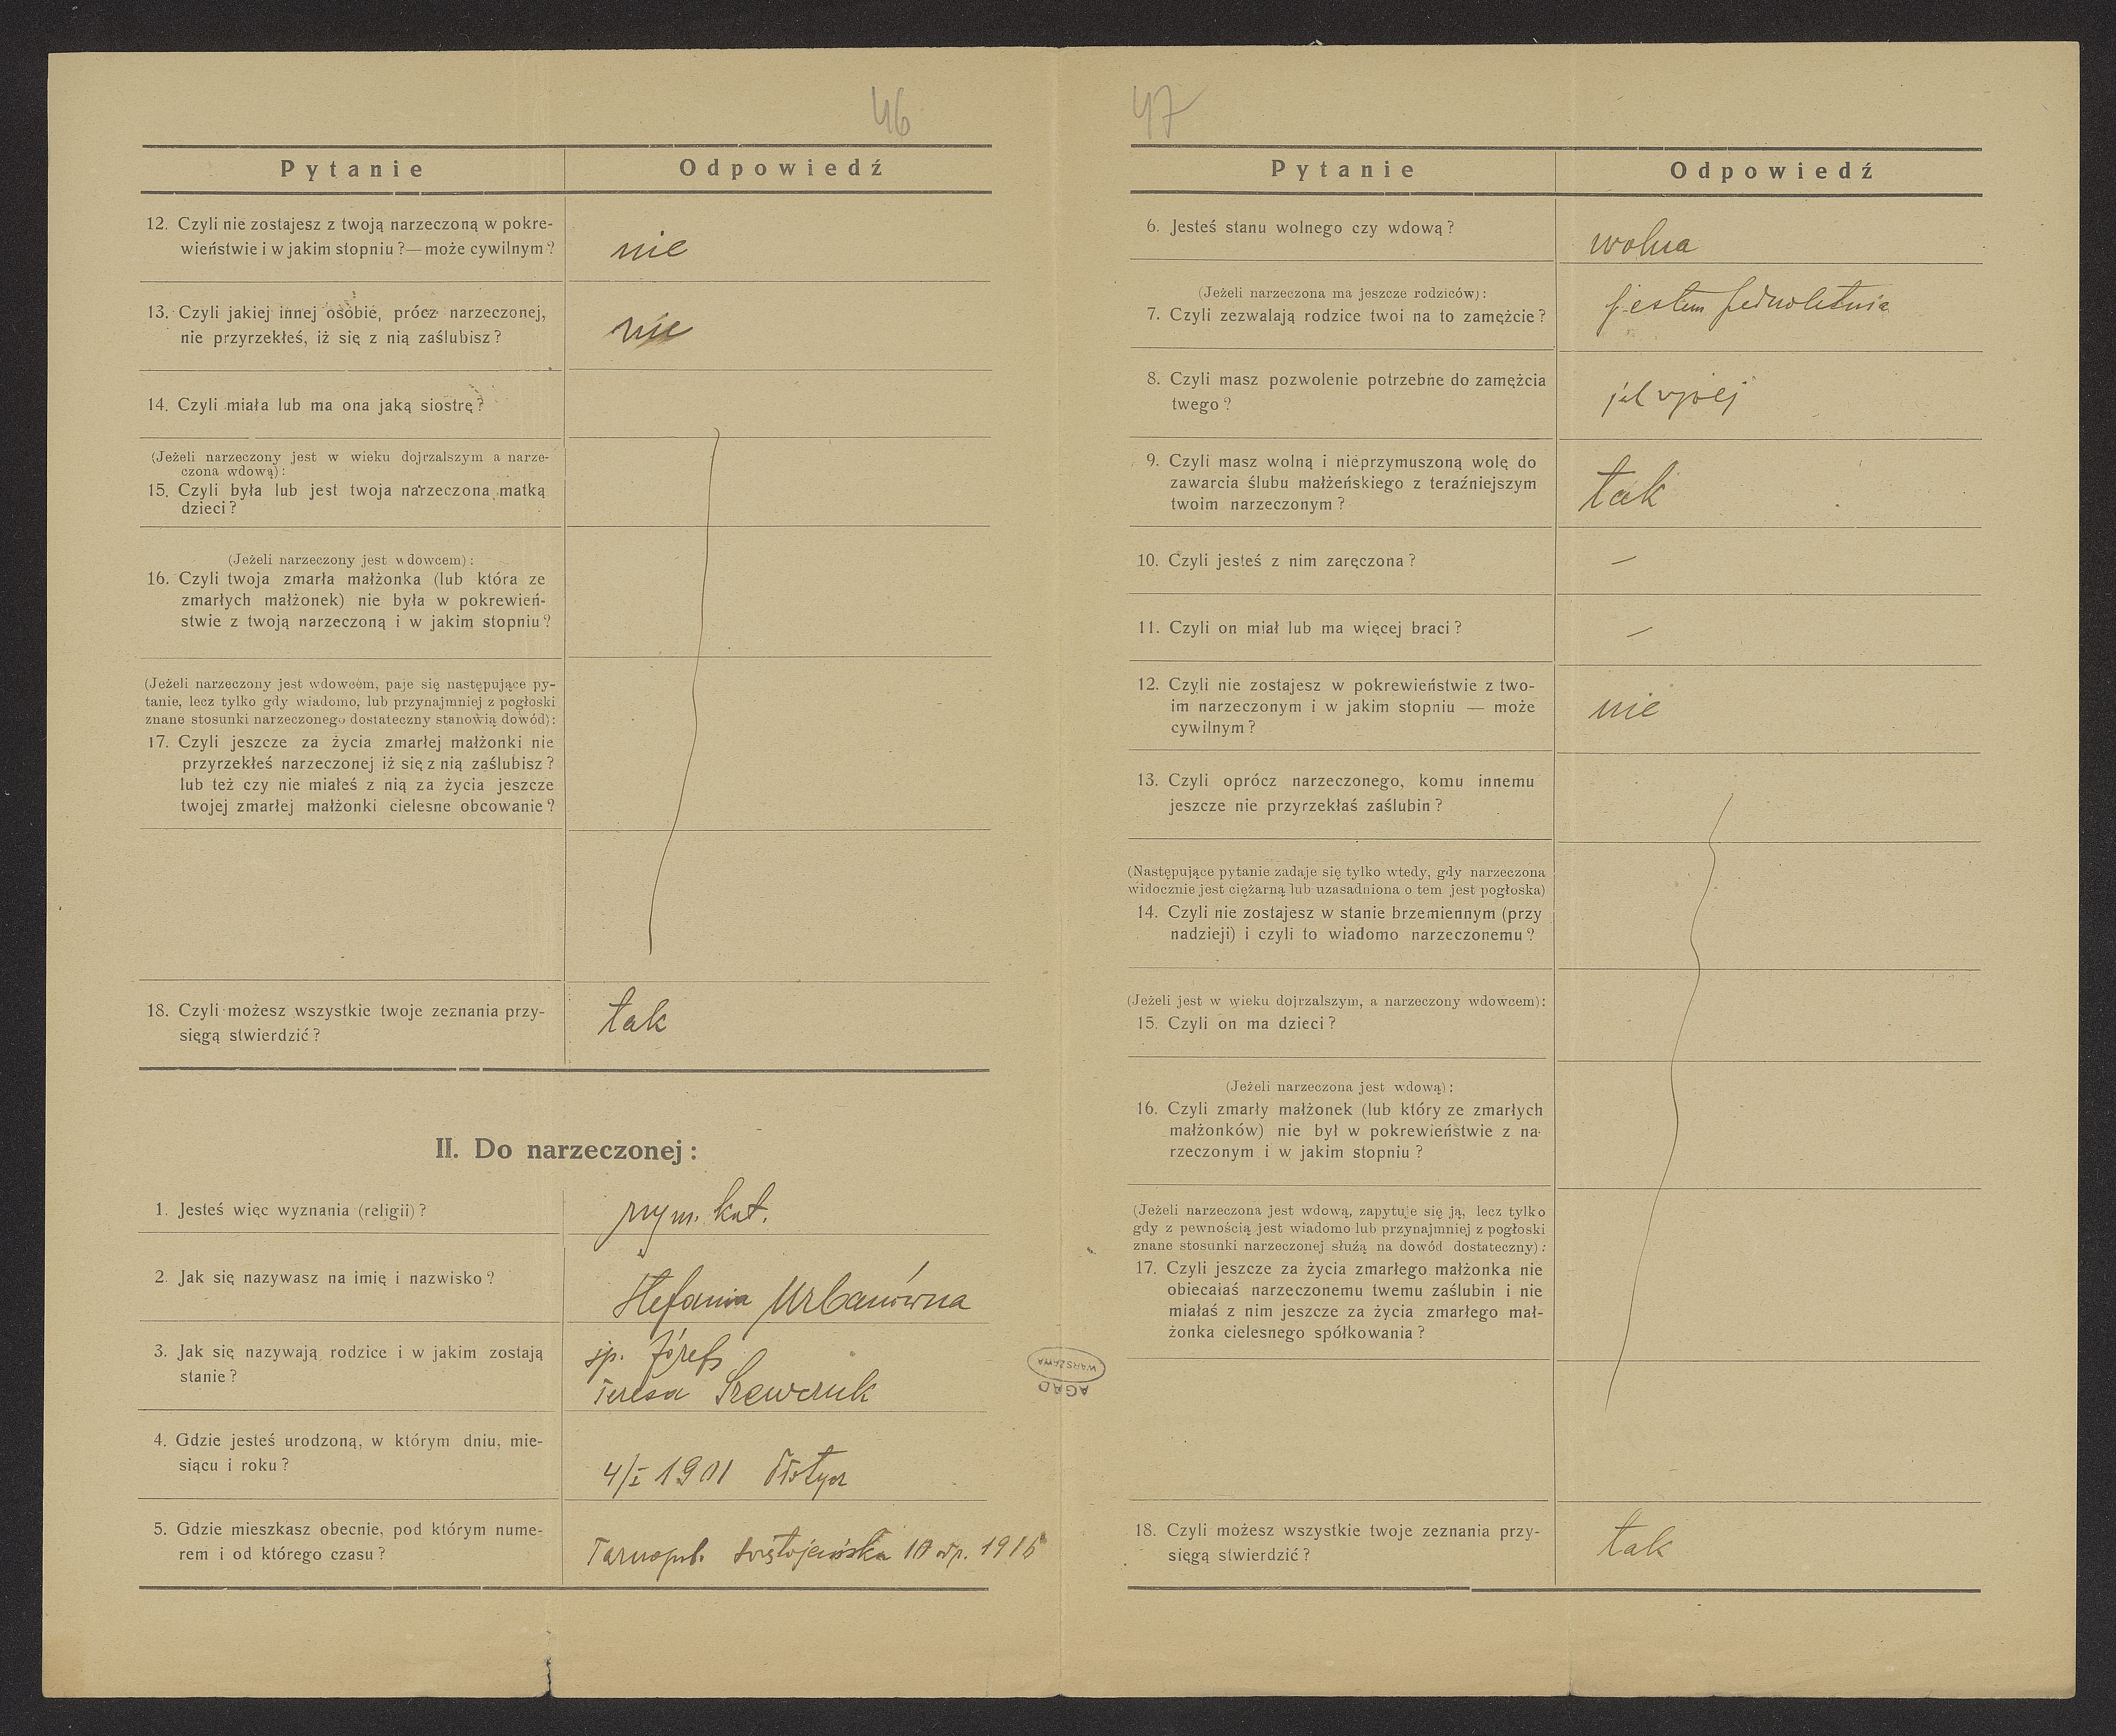 46
Pytanie Odpowiedź
12. Czyli nie zostajesz z twoją narzeczoną w pokre-
wieństwie i w jakim stopniu?— może cywilnym?
nie
13. Czyli jakiej innej osobie, prócz narzeczonej,
nie przyrzekłeś, iż się z nią zaślubisz?
nie
14. Czyli miała lub ma ona jaką siostrę?
(Jeżeli narzeczony jest w wieku dojrzalszym a narze-
czona wdową):
15. Czyli była lub jest twoja narzeczona matką
dzieci?
(Jeżeli narzeczony jest wdowcem):
16. Czyli twoja zmarła małżonka (lub która ze
zmarłych małżonek) nie była w pokrewień-
stwie z twoją narzeczoną i w jakim stopniu?
(Jeżeli narzeczony jest wdowcem, paje się następujące py-
tanie, lecz tylko gdy wiadomo, lub przynajmniej z pogłoski
znane stosunki narzeczonego dostateczny stanowią dowód):
17. Czyli jeszcze za życia zmarłej małżonki nie
przyrzekłeś narzeczonej iż się z nią zaślubisz?
lub też czy nie miałeś z nią za życia jeszcze
twojej zmarłej małżonki cielesne obcowanie?
18. Czyli możesz wszystkie twoje zeznania przy-
sięgą stwierdzić?
tak
II. Do narzeczonej:
1. Jesteś więc wyznania (religii)?
rzym. kat.
2. Jak się nazywasz na imię i nazwisko?
Stefania Urbanówna
3. Jak się nazywają rodzice i w jakim zostają
stanie?
śp. Józefa
Teresa Szewczuk
4. Gdzie jesteś urodzoną, w którym dniu, mie-
siącu i roku?
4/I 1901
5. Gdzie mieszkasz obecnie, pod którym nume-
rem i od którego czasu?
Tarnopol. Świętojańska 10 od p. 1916
AGAD
WARSZAWA
47
Pytanie Odpowiedź
6. Jesteś stanu wolnego czy wdową?
wolna
(Jeżeli narzeczona ma jeszcze rodziców):
7. Czyli zezwalają rodzice twoi na to zamężcie?
jestem pełnoletnia
8. Czyli masz pozwolenie potrzebne do zamężcia
twego?
jak wyżej
9. Czyli masz wolną i nieprzymuszoną wolę do
zawarcia ślubu małżeńskiego z teraźniejszym
twoim narzeczonym?
tak
10. Czyli jesteś z nim zaręczona?
—
11. Czyli on miał lub ma więcej braci?
—
12. Czyli nie zostajesz w pokrewieństwie z two-
im narzeczonym i w jakim stopniu — może
cywilnym?
nie
13. Czyli oprócz narzeczonego, komu innemu
jeszcze nie przyrzekłaś zaślubin?
(Następujące pytanie zadaje się tylko wtedy, gdy narzeczona
widocznie jest ciężarną lub uzasadniona o tem jest pogłoska)
14. Czyli nie zostajesz w stanie brzemiennym (przy
nadzieji) i czyli to wiadomo narzeczonemu?
(Jeżeli jest w wieku dojrzalszym, a narzeczony wdowcem):
15. Czyli on ma dzieci?
(Jeżeli narzeczona jest wdową):
16. Czyli zmarły małżonek (lub który ze zmarłych
małżonków) nie był w pokrewieństwie z na-
rzeczonym i w jakim stopniu?
(Jeżeli narzeczona jest wdową, zapytuje się ją, lecz tylko
gdy z pewnością jest wiadomo lub przynajmniej z pogłoski
znane stosunki narzeczonej służą na dowód dostateczny):
17. Czyli jeszcze za życia zmarłego małżonka nie
obiecałaś narzeczonemu twemu zaślubin i nie
miałaś z nim jeszcze za życia zmarłego mał-
żonka cielesnego spółkowania?
18. Czyli możesz wszystkie twoje zeznania przy-
sięgą stwierdzić?
tak